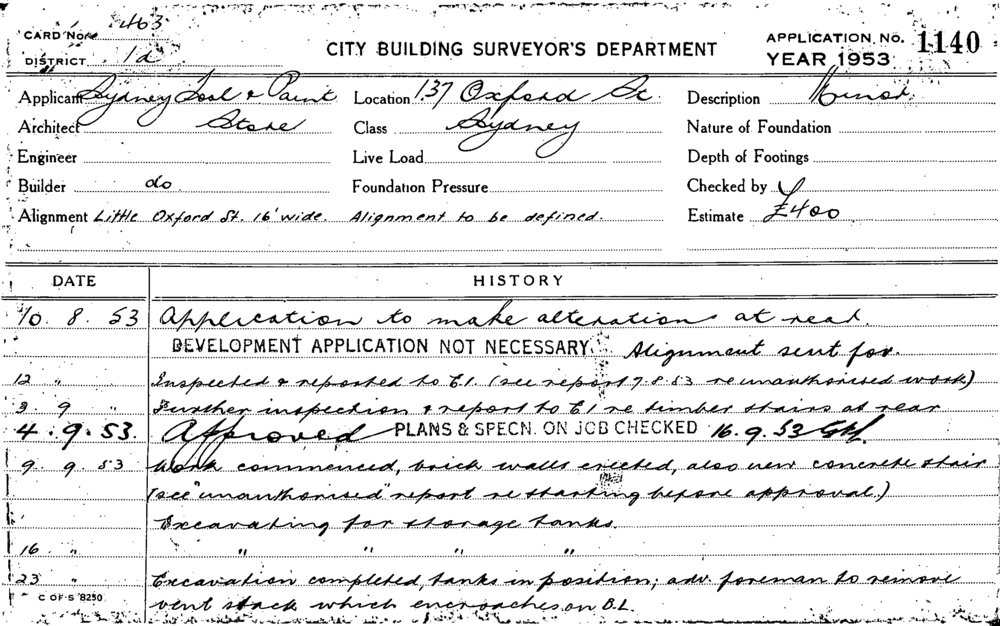 CARD No. 463
DISTRICT 1d
CITY BUILDING SURVEYOR'S DEPARTMENT
APPLICATION No. 1140
YEAR 1953
Applicant Sydney Tool & Paint Location 137 Oxford St. Description Minor
Architect Store Class Sydney Nature of Foundation
Engineer Live Load Depth of Footings
Builder do Foundation Pressure Checked by
Alignment Little Oxford St. 16' wide. Alignment to be defined. Estimate £400
DATE HISTORY
10. 8. 53 Application to make alterations at rear.
DEVELOPMENT APPLICATION NOT NECESSARY. Alignment sent for.
12 " Inspected & reported to C.I. (see report 7.8.53 re unauthorised work)
3. 9 " Further inspection & report to C I re timber stairs at rear
4. 9. 53. Approved PLANS & SPECN. ON JOB CHECKED 16. 9. 53
9. 9. 53 Work commenced, brick walls erected, also new concrete stair
(see "unauthorised" report re starting before approval.)
Excavating for storage tanks.
16 " " " " "
23 " Excavation completed, tanks in position; adv. foreman to remove
vent stack which encroaches on B.L.
C OF S 8250